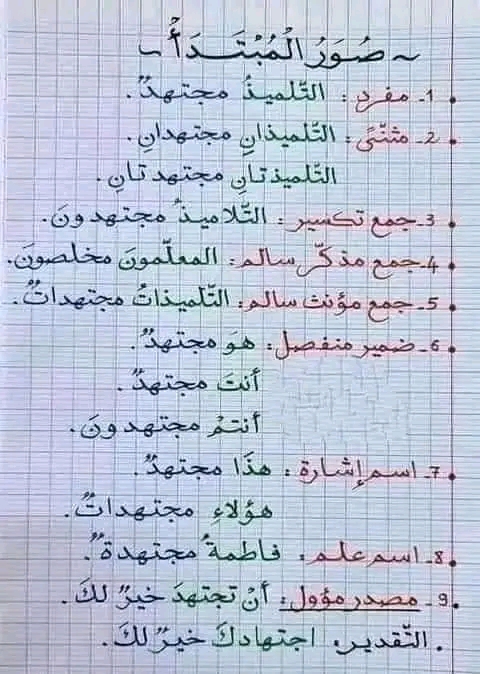 ~ صُوَرُ الْمُبْتَدَأ ~
1- مفرد: التّلميذُ مجتهدٌ.
2- مثنّىً: التّلميذانِ مجتهدانِ.
التّلميذتانِ مجتهدتانِ.
3- جمع تكسير: التّلاميذُ مجتهدونَ.
4- جمع مذكّر سالم: المعلّمونَ مخلصونَ.
5- جمع مؤنث سالم: التّلميذاتُ مجتهداتٌ.
6- ضمير منفصل: هوَ مجتهدٌ.
أنتَ مجتهدٌ.
أنتمْ مجتهدونَ.
7- اسم إشارة: هذَا مجتهدٌ.
هؤلاءِ مجتهداتٌ.
8- اسم علم: فاطمةُ مجتهدةٌ.
9- مصدر مؤول: أنْ تجتهدَ خيرٌ لكَ.
التّقدير: اجتهادكَ خيرٌ لكَ.